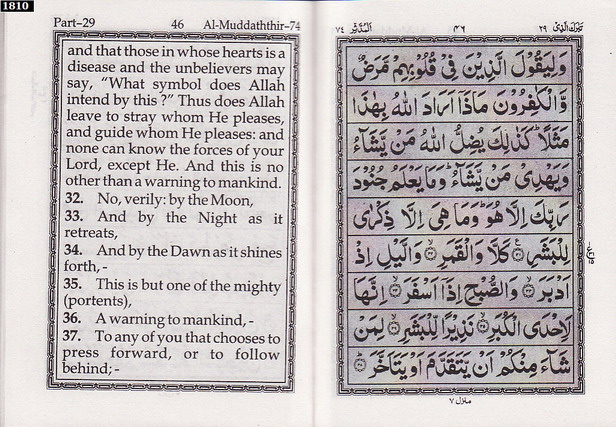 1810
Part-29 46 Al-Muddaththir-74
and that those in whose hearts is a
disease and the unbelievers may
say, “What symbol does Allah
intend by this ?” Thus does Allah
leave to stray whom He pleases,
and guide whom He pleases: and
none can know the forces of your
Lord, except He. And this is no
other than a warning to mankind.
32. No, verily: by the Moon,
33. And by the Night as it
retreats,
34. And by the Dawn as it shines
forth,-
35. This is but one of the mighty
(portents),
36. A warning to mankind, -
37. To any of you that chooses to
press forward, or to follow
behind;-
تبٰرك الذى ٢٩ ٤٦ المدثر ٧٤
وَلِيَقُوْلَ الَّذِيْنَ فِيْ قُلُوْبِهِمْ مَّرَضٌ
وَّالْكٰفِرُوْنَ مَاذَآ اَرَادَ اللّٰهُ بِهٰذَا
مَثَلًا ؕ كَذٰلِكَ يُضِلُّ اللّٰهُ مَنْ يَّشَآءُ
وَيَهْدِيْ مَنْ يَّشَآءُ ؕ وَمَا يَعْلَمُ جُنُوْدَ
رَبِّكَ اِلَّا هُوَ ؕ وَمَا هِيَ اِلَّا ذِكْرٰى
لِلْبَشَرِ ۝٣١ كَلَّا وَالْقَمَرِ ۝٣٢ وَالَّيْلِ اِذْ
اَدْبَرَ ۝٣٣ وَالصُّبْحِ اِذَآ اَسْفَرَ ۝٣٤ اِنَّهَا
لَاِحْدَى الْكُبَرِ ۝٣٥ نَذِيْرًا لِّلْبَشَرِ ۝٣٦ لِمَنْ
شَآءَ مِنْكُمْ اَنْ يَّتَقَدَّمَ اَوْ يَتَاَخَّرَ ۝٣٧
منزل ٧